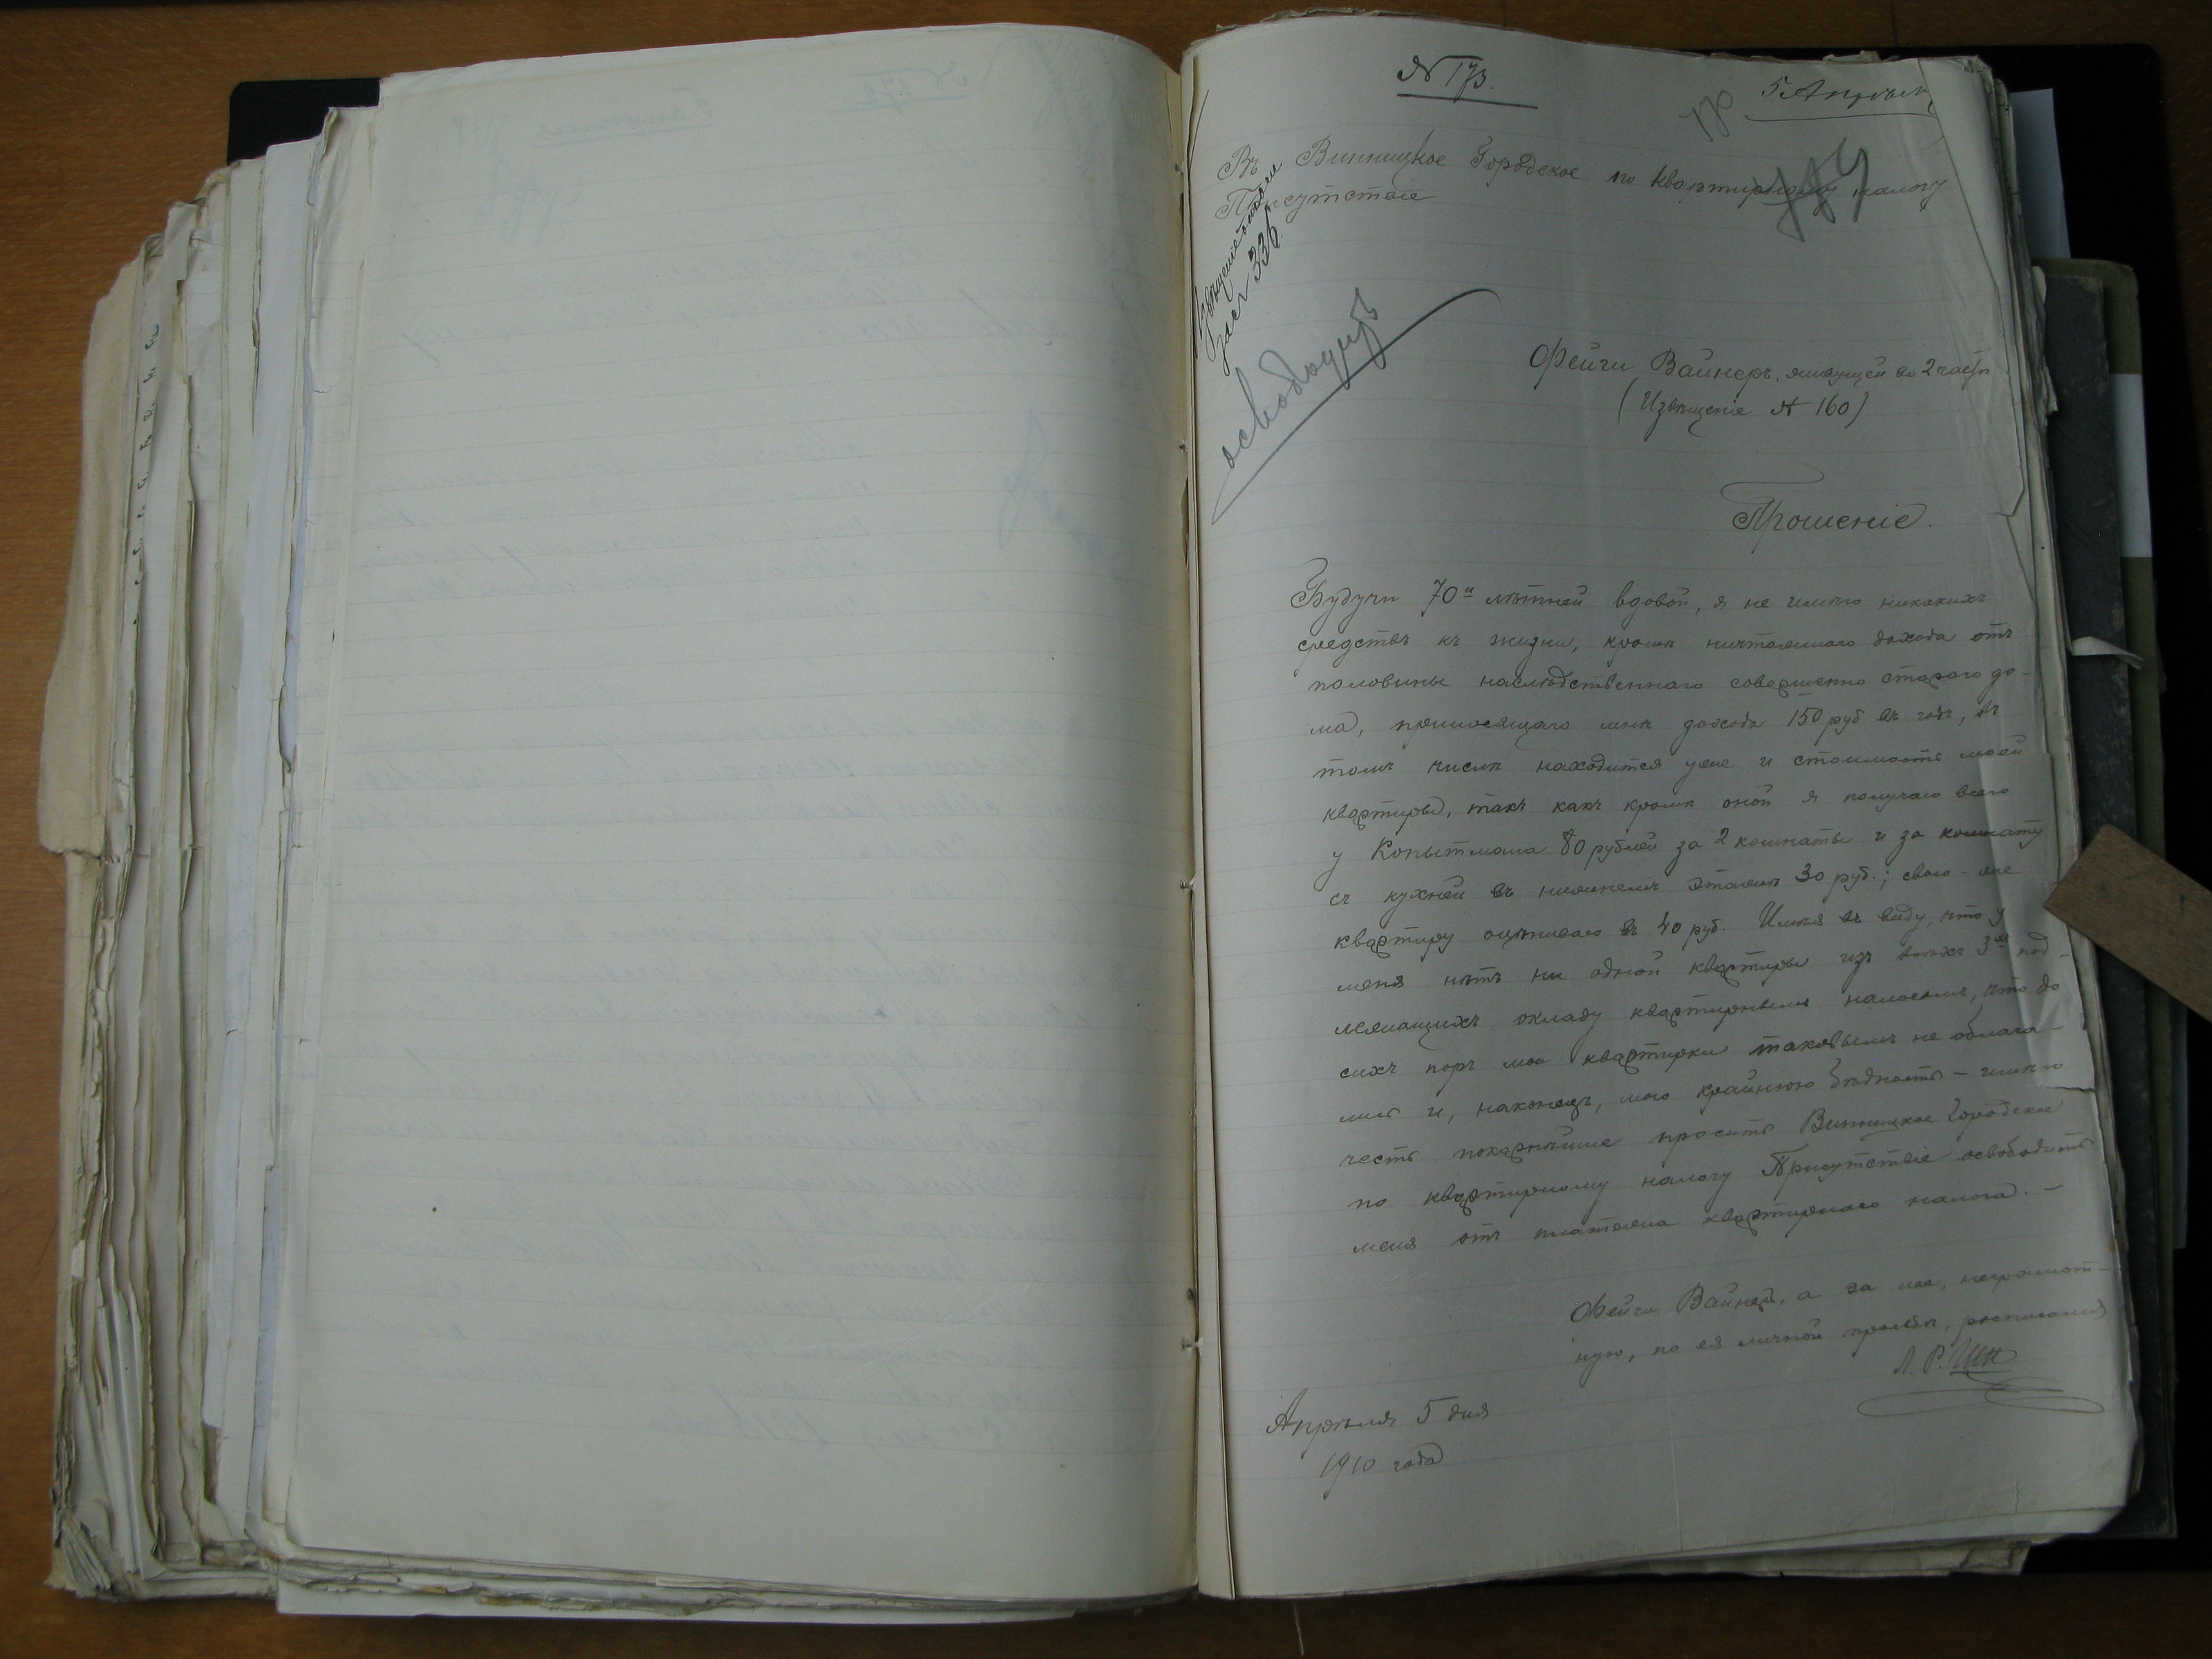 № 173.
5 Апрѣля
Въ Винницкое Городское по квартирному налогу
Присутствіе
за № 336.
освободить
Фейги Вайнеръ, живущей во 2 части
(Извѣщеніе № 160)
Прошеніе.
Будучи 70и лѣтней вдовой, я не имѣю никакихъ
средствъ къ жизни, кромѣ ничтожнаго дохода отъ
половины наслѣдственнаго совершенно стараго до-
ма, приносящаго мнѣ дохода 150 руб въ годъ, въ
томъ числѣ находится уже и стоимость моей
квартиры, такъ какъ кромѣ оной я получаю всего
у Копытмана 80 рублей за 2 комнаты и за комнату
съ кухней въ нижнемъ этажѣ 30 руб.; свою-же
квартиру оцѣниваю въ 40 руб. Имѣя въ виду, что у
меня нѣтъ ни одной квартиры изъ всѣхъ 3хъ под-
лежащихъ окладу квартирнымъ налогомъ, что до
сихъ поръ мои квартирки таковымъ не облага-
лись и, наконецъ, мою крайнюю бѣдность – имѣю
честь покорнѣйше просить Винницкое Городское
по квартирному налогу Присутствіе освободить
меня отъ платежа квартирнаго налога. –
Фейги Вайнеръ, а за нее, неграмот-
ную, по ея личной просьбѣ, росписался
Л. Р.
Апрѣля 5 дня
1910 года